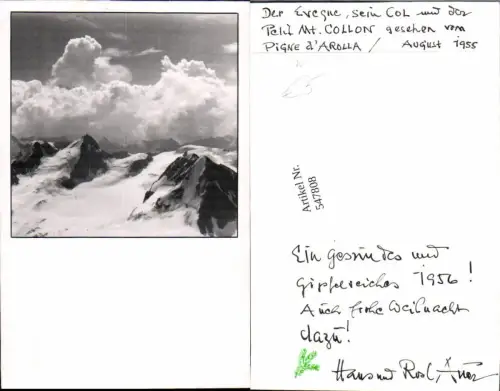 Der Evêque, sein Col und der
Petit Mt. COLLON gesehen vom
PIGNE d'AROLLA / AUGUST 1955
Artikel Nr.
547808
Ein gesundes und
gipfelreiches 1956!
Auch frohe Weihnacht
dazu!
Hans und Rosl